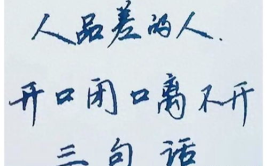 人品差的人.
开口闭口离不开
三句话